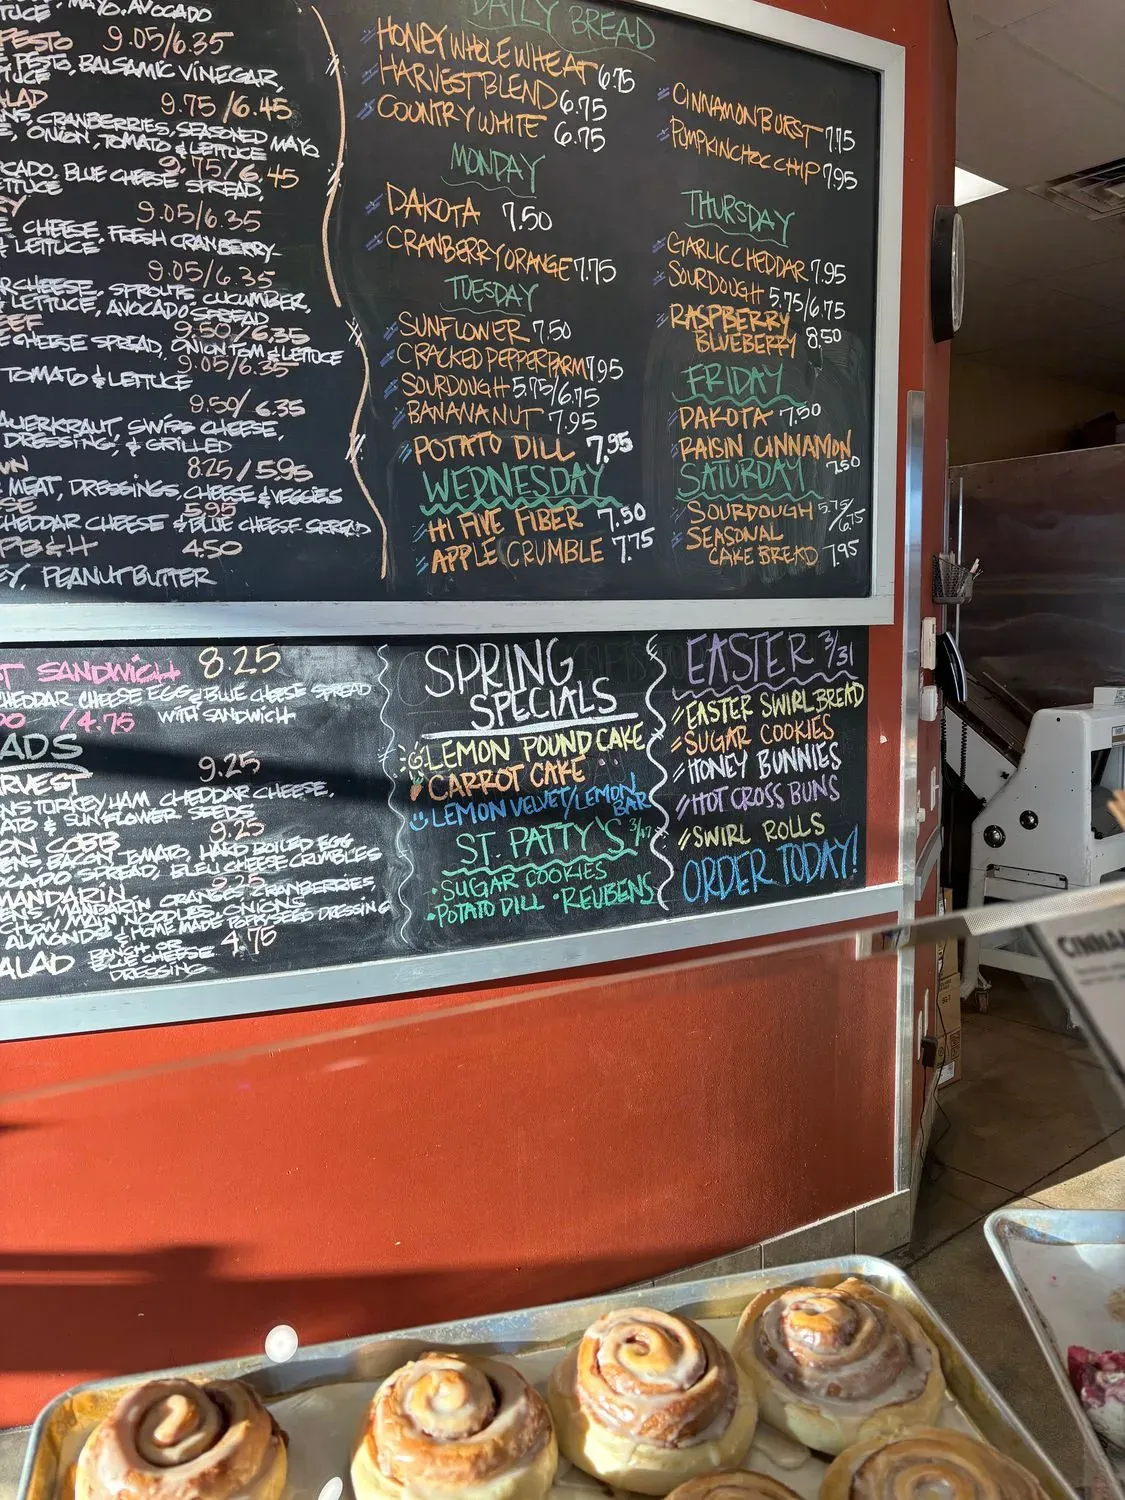 TUCE, MAYO, AVOCADO
PESTO 9.05/6.35
PESTO, BALSAMIC VINEGAR,
TUCE
ALAD 9.75/6.45
NS, CRANBERRIES, SEASONED MAYO
E, ONION, TOMATO & LETTUCE
9.75/6.45
CADO, BLUE CHEESE SPREAD,
ETTUCE
EY 9.05/6.35
E CHEESE, FRESH CRANBERRY-
& LETTUCE
9.05/6.35
R CHEESE, SPROUTS, CUCUMBER,
LETTUCE, AVOCADO SPREAD
EEF 9.50/6.35
E CHEESE SPREAD, ONION TOM & LETTUCE
9.05/6.35
TOMATO & LETTUCE
9.50/6.35
AUERKRAUT, SWISS CHEESE,
DRESSING, & GRILLED
WN 8.25/5.95
MEAT, DRESSINGS, CHEESE & VEGGIES
SE 5.95
CHEDDAR CHEESE & BLUE CHEESE SPREAD
PB&H 4.50
EY, PEANUT BUTTER
DAILY BREAD
HONEY WHOLE WHEAT 6.75
HARVEST BLEND 6.75
COUNTRY WHITE 6.75
MONDAY
DAKOTA 7.50
CRANBERRY ORANGE 7.75
TUESDAY
SUNFLOWER 7.50
CRACKED PEPPER PARM 7.95
SOURDOUGH 5.75/6.75
BANANA NUT 7.95
POTATO DILL 7.95
WEDNESDAY
HI FIVE FIBER 7.50
APPLE CRUMBLE 7.75
CINNAMON BURST 7.75
PUMPKIN CHOC CHIP 7.95
THURSDAY
GARLIC CHEDDAR 7.95
SOURDOUGH 5.75/6.75
RASPBERRY
BLUEBERRY 8.50
FRIDAY
DAKOTA 7.50
RAISIN CINNAMON
7.50
SATURDAY
SOURDOUGH 5.75/6.75
SEASONAL
CAKE BREAD 7.95
T SANDWICH 8.25
CHEDDAR CHEESE EGG & BLUE CHEESE SPREAD
/4.75 WITH SANDWICH
ADS
ARVEST 9.25
NS TURKEY HAM CHEDDAR CHEESE,
ATO & SUNFLOWER SEEDS
ON COBB 9.25
ENS BACON, TOMATO, HARD BOILED EGG
OCADO SPREAD, BLEU CHEESE CRUMBLES
MANDARIN 9.25
ENS, MANDARIN ORANGES, CRANBERRIES,
CHOW MAIN NOODLES, ONIONS
ALMONDS & HOME MADE POPPYSEED DRESSING
ALAD RANCH OR 4.75
BLUE CHEESE
DRESSING
SPRING
SPECIALS
LEMON POUND CAKE
CARROT CAKE
LEMON VELVET/LEMON
BAR
ST. PATTY'S 3/17
SUGAR COOKIES
POTATO DILL • REUBENS
EASTER 3/31
EASTER SWIRL BREAD
SUGAR COOKIES
HONEY BUNNIES
HOT CROSS BUNS
SWIRL ROLLS
ORDER TODAY!
CINNA